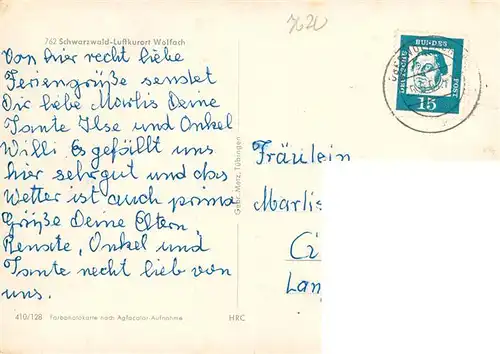 762 Schwarzwald-Luftkurort Wolfach
7620
Von hier recht liebe
Feriengrüße sendet
Dir liebe Marlis Deine
Tante Ilse und Onkel
Willi Es gefällt uns
hier sehr gut und das
Wetter ist auch prima
Grüße Deine Eltern,
Renate, Onkel und
Tante recht lieb von
uns.
410/128 Farbenfotokarte nach Agfacolor-Aufnahme
HRC
Gebr. Metz, Tübingen
DEUTSCHE
BUNDES
POST
15
Fräulein
Marlis